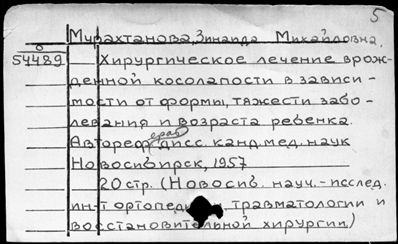 5
Мурахтанова, Зинаида Михайловна.
54489 Хирургическое лечение врож-
денной косолапости в зависи-
мости от формы, тяжести забо-
левания и возраста ребенка.
Автореф. дисс. канд. мед. наук
Новосибирск, 1957
20 стр. (Новосиб. науч.-исслед.
ин-т ортопедии, травматологии и
восстановительной хирургии)